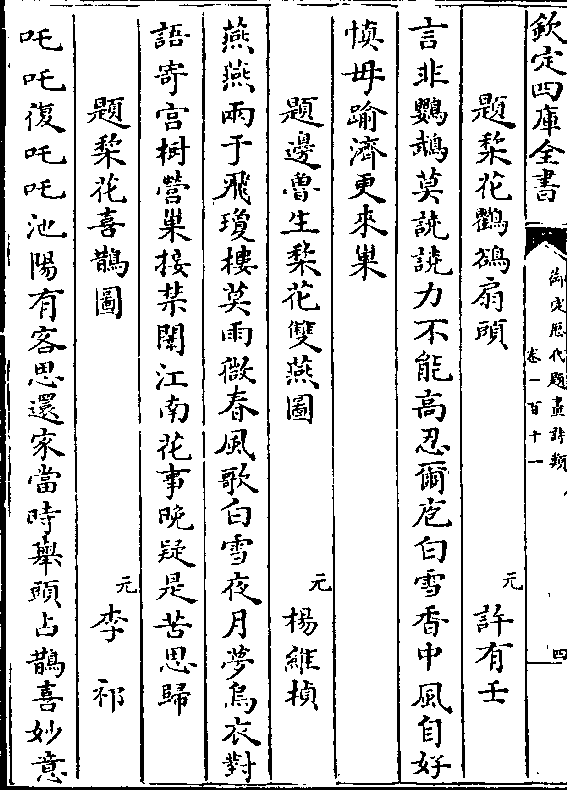 欽定四庫全書
御定歷代題畫詩類
卷一百十一
四
題梨花鸜鵒扇頭
元 許有壬
言非鸚鵡莫譊譊力不能高忍爾庖白雪香中風自好
慎毋踰濟更來巢
題邊魯生梨花雙燕圖
元 楊維楨
燕燕兩于飛瓊樓莫雨微春風歌白雪夜月夢烏衣對
語寄宮樹營巢接禁闈江南花事晚疑是苦思歸
題梨花喜鵲圖
元 李祁
吒吒復吒吒池陽有客思還家當時舉頭占鵲喜妙意